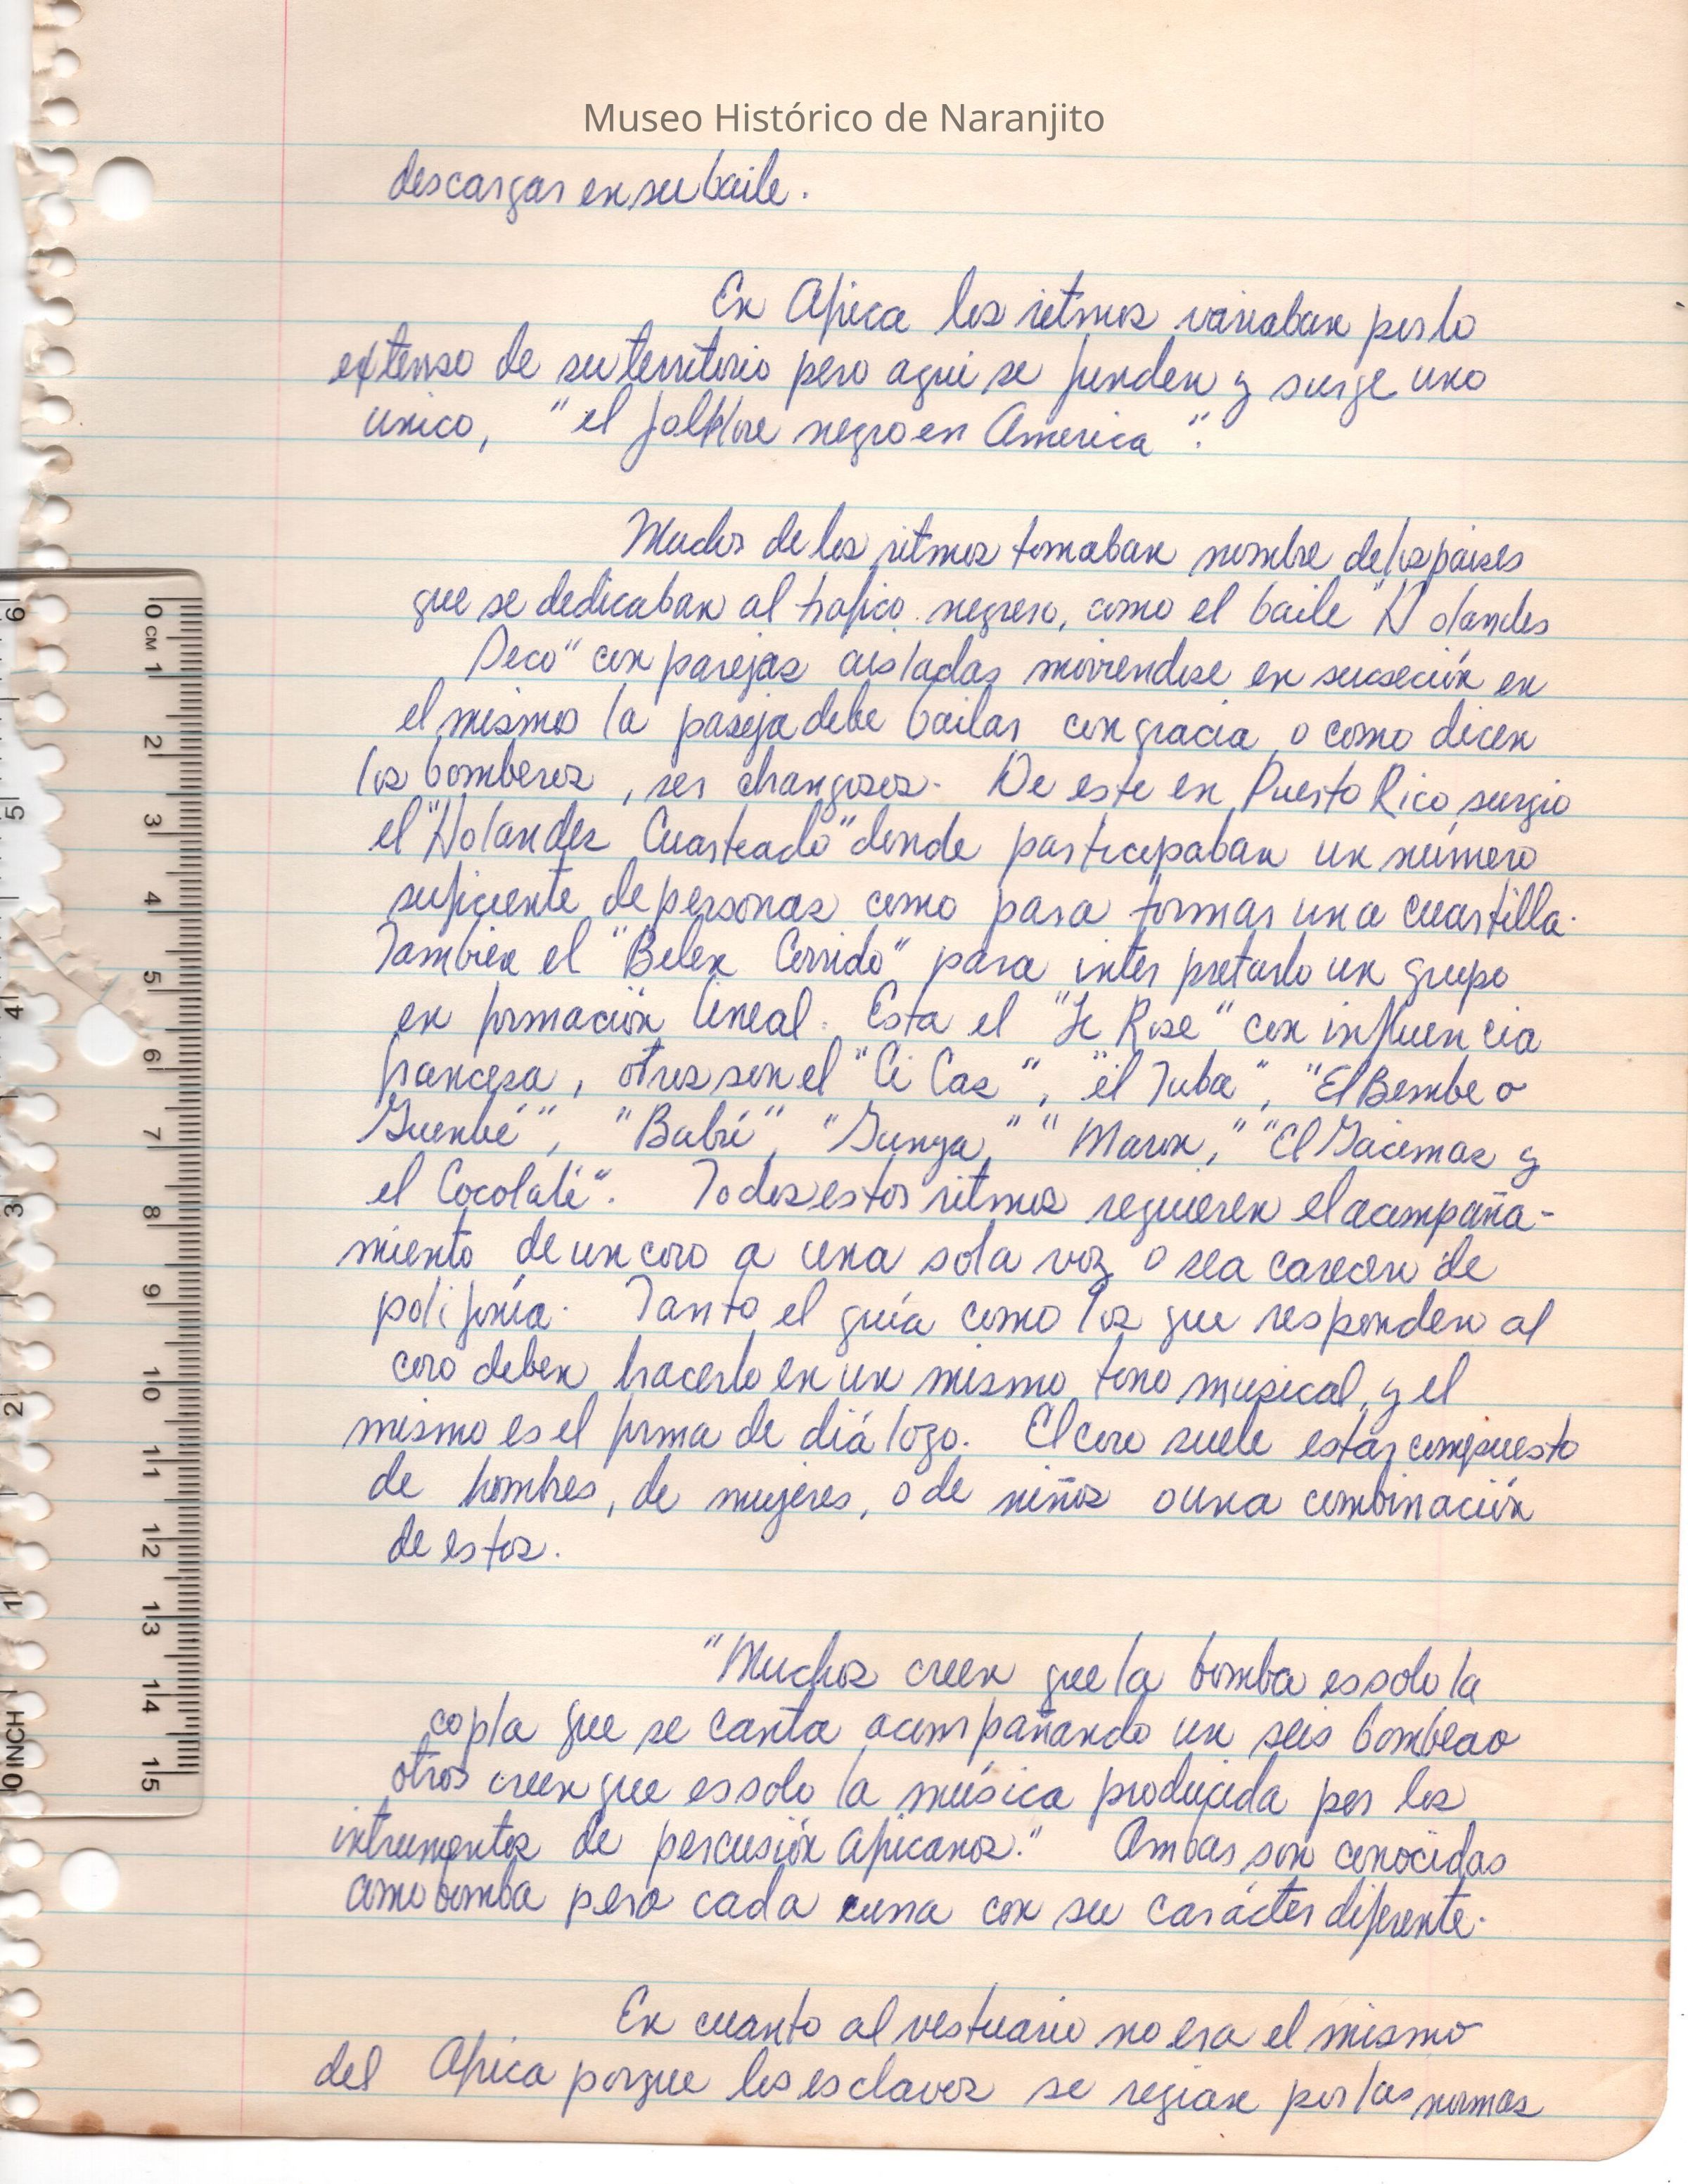 Museo Histórico de Naranjito
descargar en su baile.
En Africa los ritmos variaban por lo
extenso de su territorio pero aqui se funden y surge uno
unico, "el folklore negro en America".
Muchos de los ritmos tomaban nombre de los paises
que se dedicaban al trafico negrero, como el baile "Holandes
Seco" con parejas aisladas moviendose en sucseción en
el mismo la pareja debe bailar con gracia o como dicen
los bomberos, ser changosos. De este en Puerto Rico surgio
el "Holandes Cuarteado" donde participaban un número
suficiente de personas como para formar una cuartilla.
Tambien el "Belen Corrido" para interpretarlo un grupo
en formación lineal. Esta el "Le Rose" con influencia
francesa, otros son el "Ci Cas", "el Tuba", "El Bembe o
Guenbé", "Babú", "Gunga," "Maron," "El Gracimas y
el Cocolalé". Todos estos ritmos requieren el acompaña-
miento de un coro a una sola voz o sea carecen de
polifonía. Tanto el guía como los que responden al
coro deben hacerlo en un mismo tono musical, y el
mismo es el forma de diálogo. El coro suele estar compuesto
de hombres, de mujeres, o de niños o una combinación
de estos.
"Muchos creen que la bomba es solo la
copla que se canta acompañando un seis bombeao
otros creen que es solo la música producida por los
intrumentos de percusión africanos." Ambas son conocidas
como bomba pero cada una con su carácter diferente.
En cuanto al vestuario no era el mismo
del Africa porque los esclavos se regian por las normas
0 CM 1 2 3 4 5 6 7 8 9 10 11 12 13 14 15
0 INCH 1 2 3 4 5 6